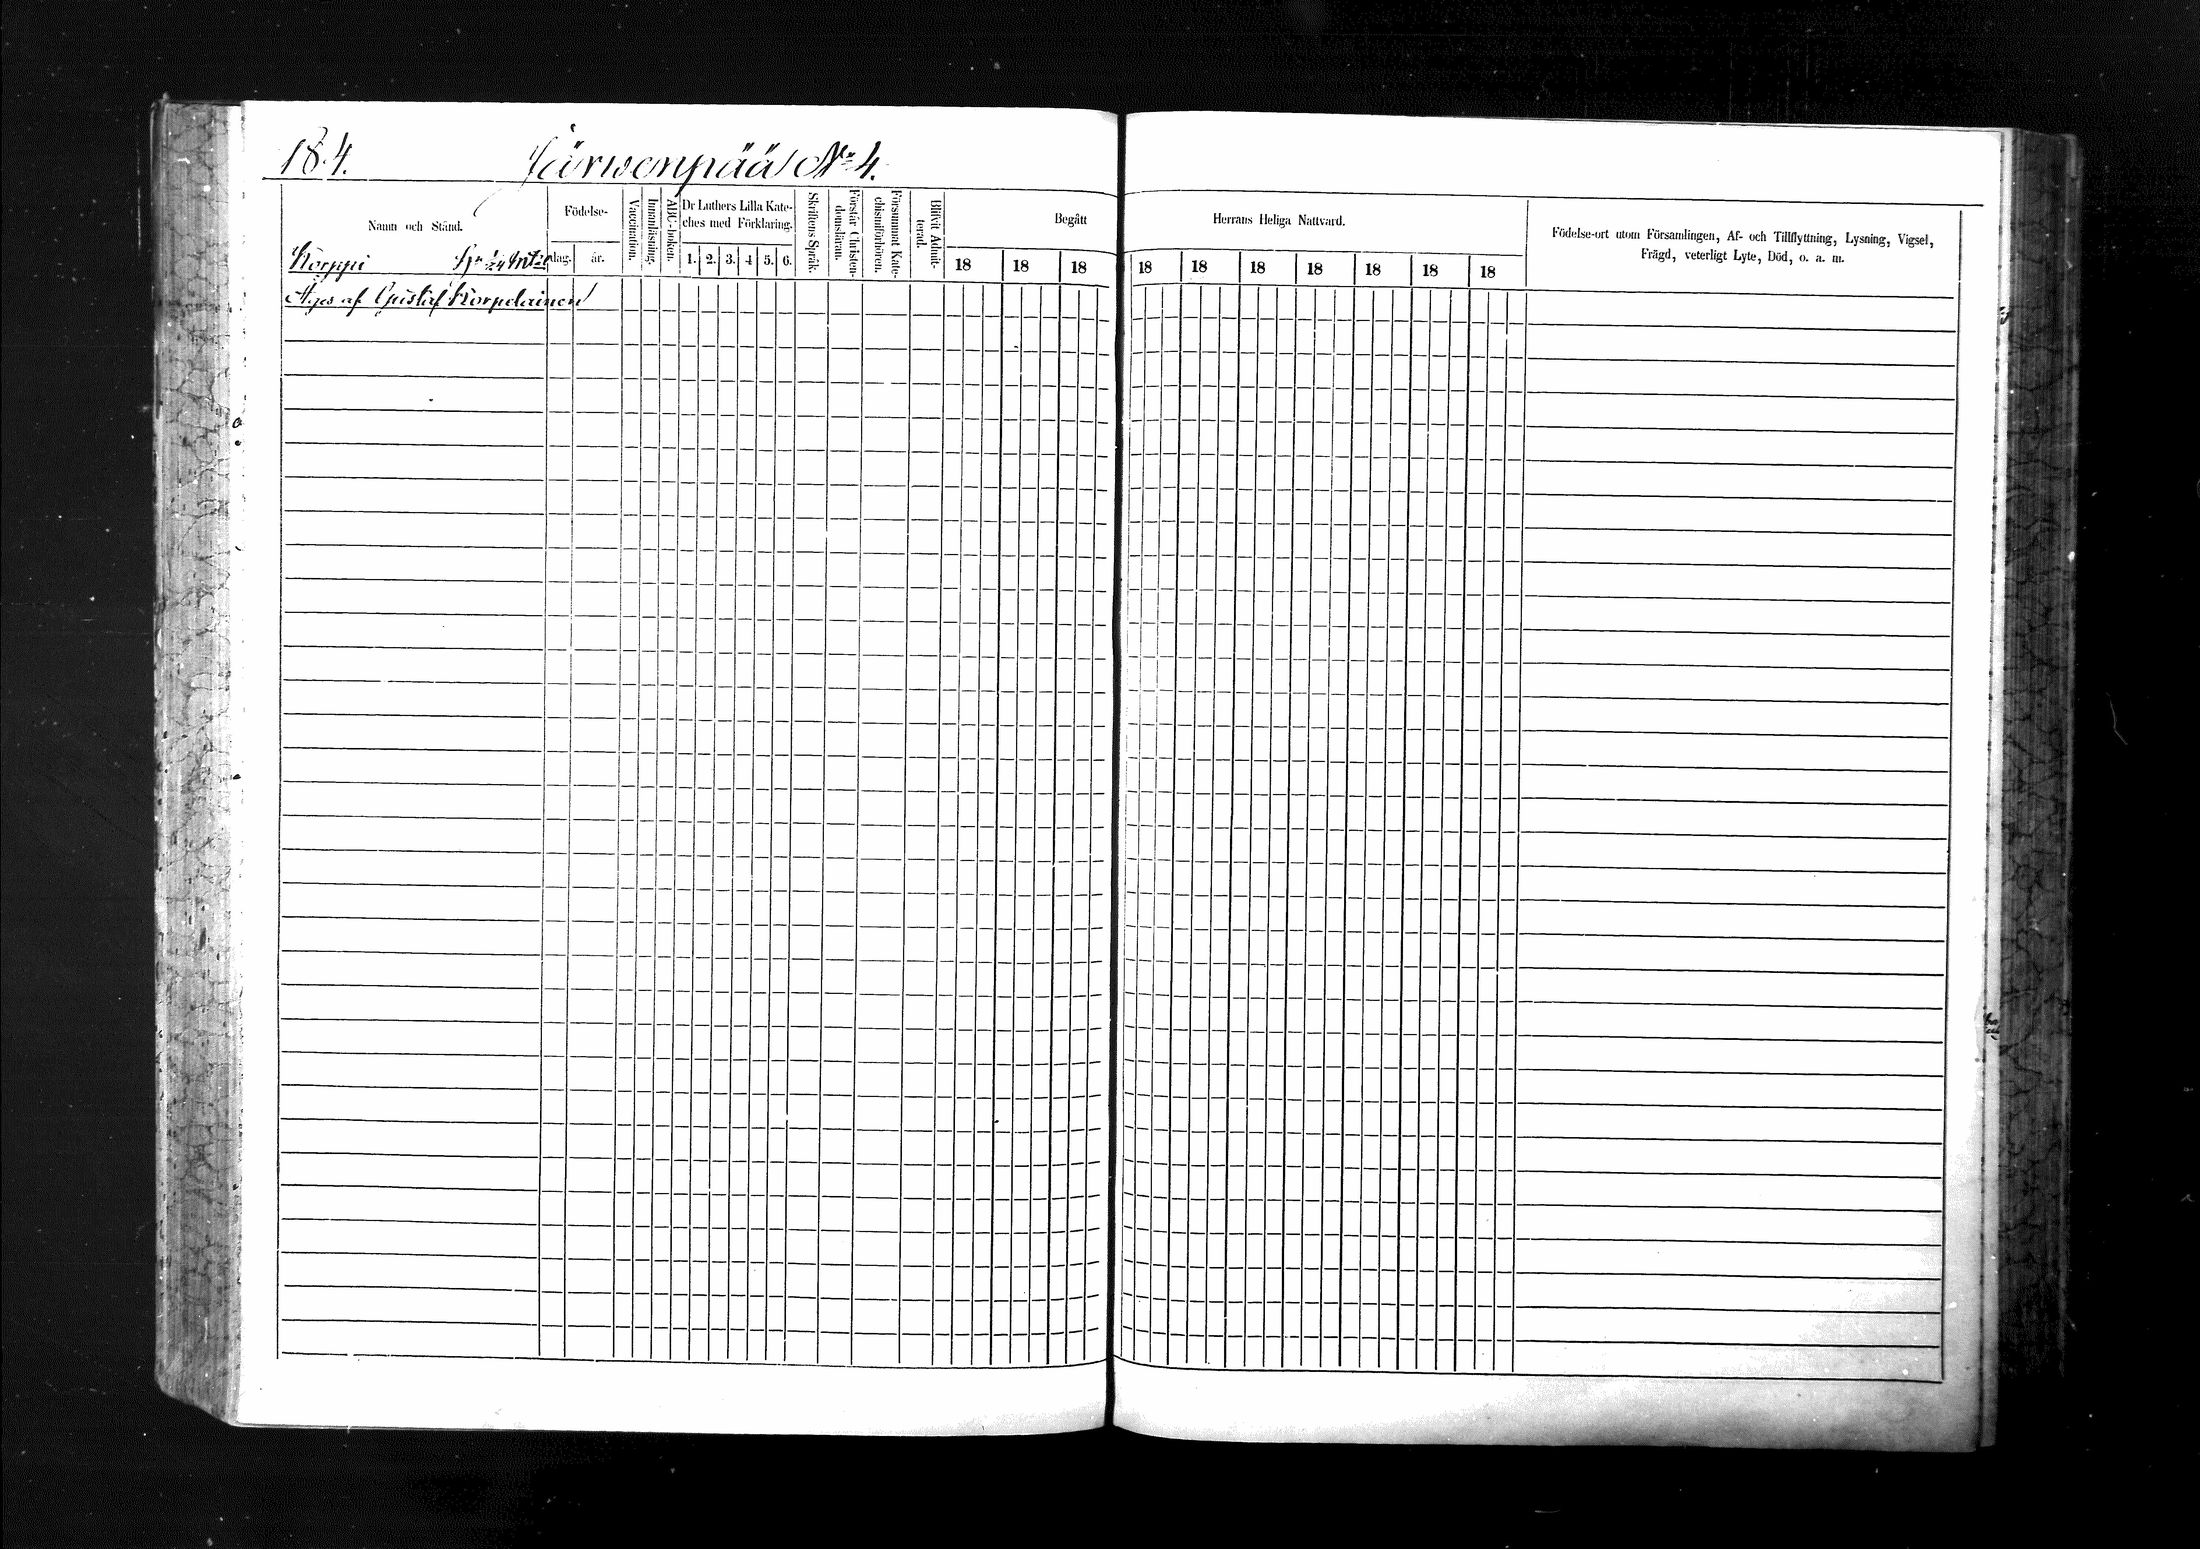 184. Järwenpää No 4.
Namn och Stånd.
Födelse-
dag. år.
Vaccination.
Innanläsning.
ABC-boken.
Dr Luthers Lilla Kate-
ches med Förklaring.
1. 2. 3. 4 5. 6.
Skriftens Språk.
Förstår Christen-
domsläran.
Försummat Kate-
chismiförhören.
Blifvit Admit-
terad.
Begått Herrans Heliga Nattvard.
18 18 18 18 18 18 18 18 18 18
Födelse-ort utom Församlingen, Af- och Tillflyttning, Lysning, Vigsel,
Frägd, veterligt Lyte, Död, o. a. m.
Korppi
Äges af Gustaf Korpelainen